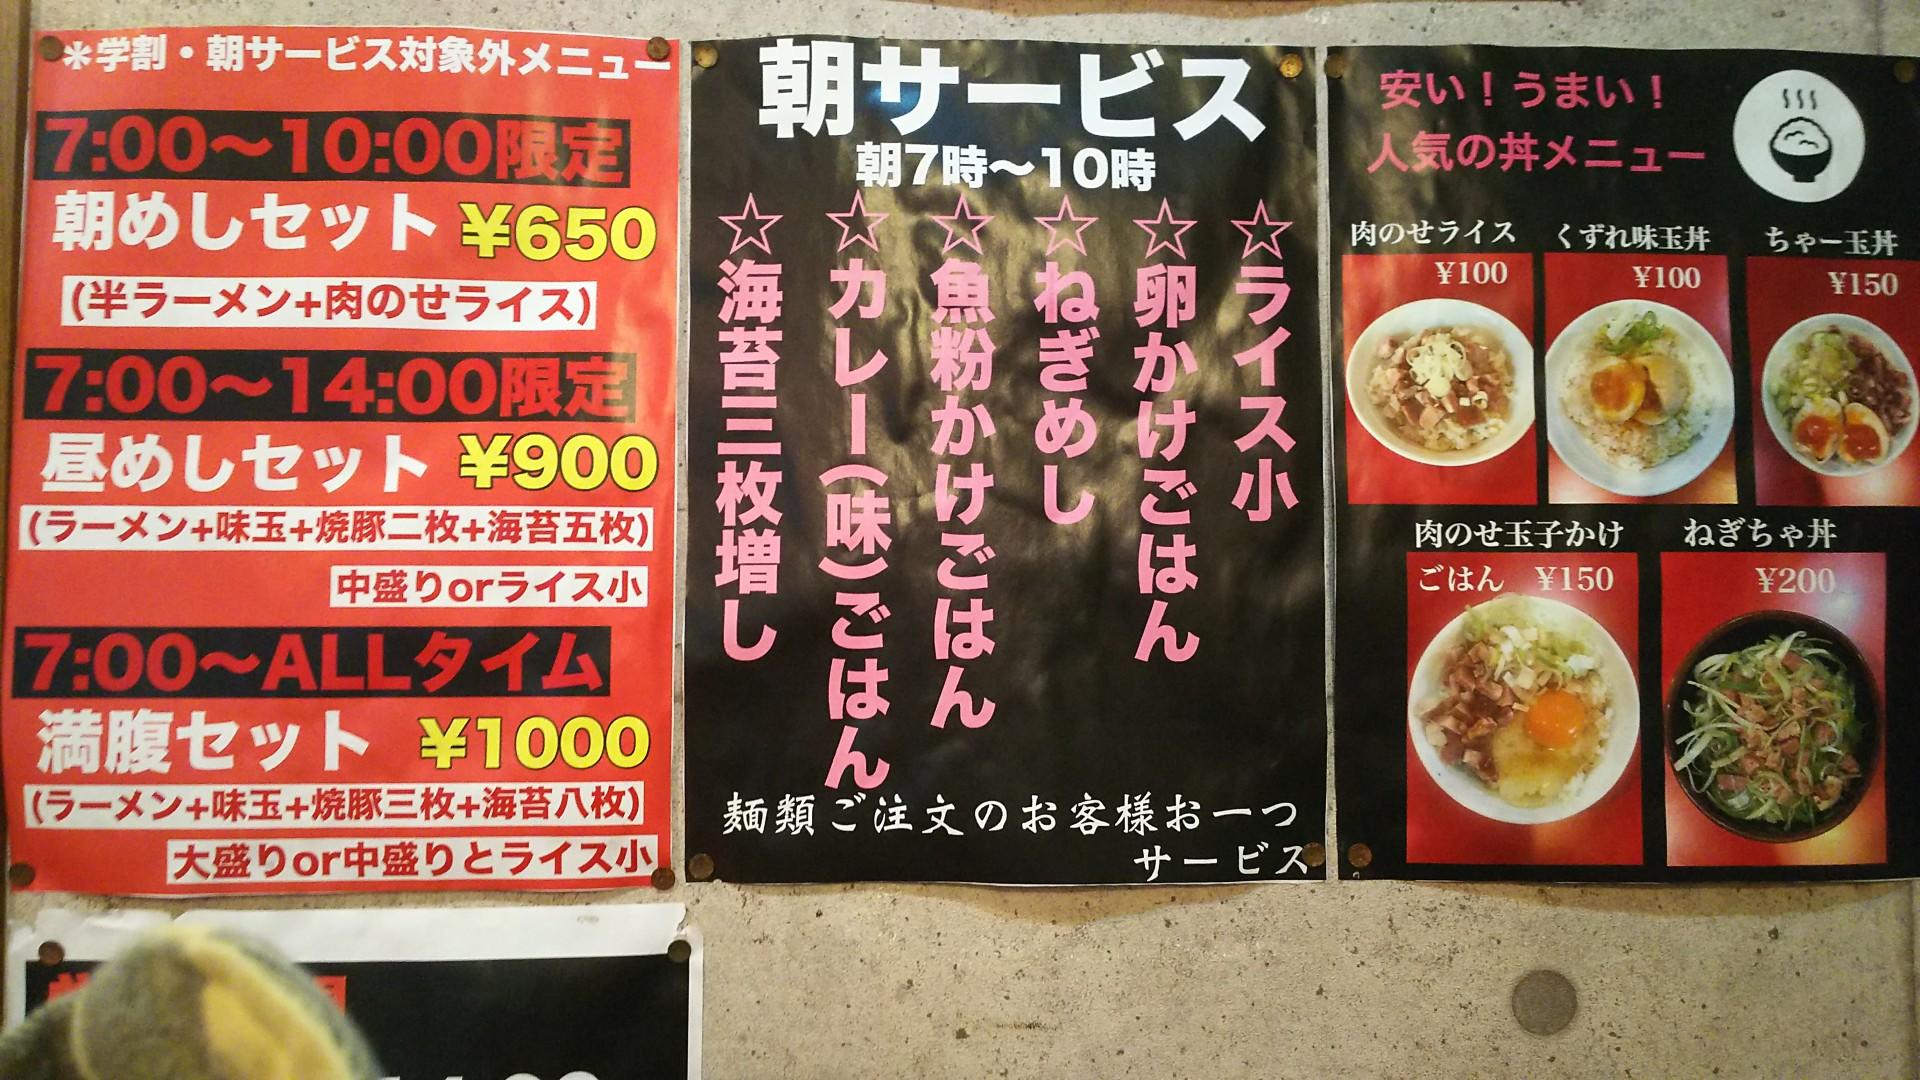 ＊学割・朝サービス対象外メニュー
7:00〜10:00限定
朝めしセット ¥650
(半ラーメン+肉のせライス)
7:00〜14:00限定
昼めしセット ¥900
(ラーメン+味玉+焼豚二枚+海苔五枚)
中盛りorライス小
7:00〜ALLタイム
満腹セット ¥1000
(ラーメン+味玉+焼豚三枚+海苔八枚)
大盛りor中盛りとライス小
朝サービス
朝7時〜10時
☆ライス小
☆卵かけごはん
☆ねぎめし
☆魚粉かけごはん
☆カレー(味)ごはん
☆海苔三枚増し
麺類ご注文のお客様お一つ
サービス
安い！うまい！
人気の丼メニュー
肉のせライス
¥100
くずれ味玉丼
¥100
ちゃー玉丼
¥150
肉のせ玉子かけ
ごはん ¥150
ねぎちゃ丼
¥200